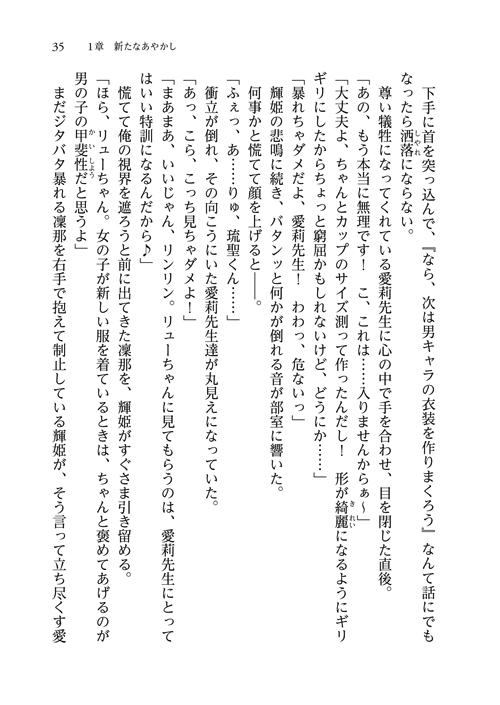 35　1章　新たなあやかし
　下手に首を突っ込んで、『なら、次は男キャラの衣装を作りまくろう』なんて話にでも
なったら洒落にならない。
　尊い犠牲になってくれている愛莉先生に心の中で手を合わせ、目を閉じた直後。
「あの、もう本当に無理です！　こ、これは……入りませんからぁ～」
「大丈夫よ、ちゃんとカップのサイズ測って作ったんだし！　形が綺麗になるようにギリ
ギリにしたからちょっと窮屈かもしれないけど、どうにか……」
「暴れちゃダメだよ、愛莉先生！　わわっ、危ないっ」
　輝姫の悲鳴に続き、バタンッと何かが倒れる音が部室に響いた。
　何事かと慌てて顔を上げると――。
「ふぇっ、あ……りゅ、琉聖くん……」
　衝立が倒れ、その向こうにいた愛莉先生達が丸見えになっていた。
「あっ、こら、こっち見ちゃダメよ！」
「まあまあ、いいじゃん、リンリン。リューちゃんに見てもらうのは、愛莉先生にとって
はいい特訓になるんだから♪」
　慌てて俺の視界を遮ろうと前に出てきた凜那を、輝姫がすぐさま引き留める。
「ほら、リューちゃん。女の子が新しい服を着ているときは、ちゃんと褒めてあげるのが
男の子の甲斐性だと思うよ」
　まだジタバタ暴れる凜那を右手で抱えて制止している輝姫が、そう言って立ち尽くす愛